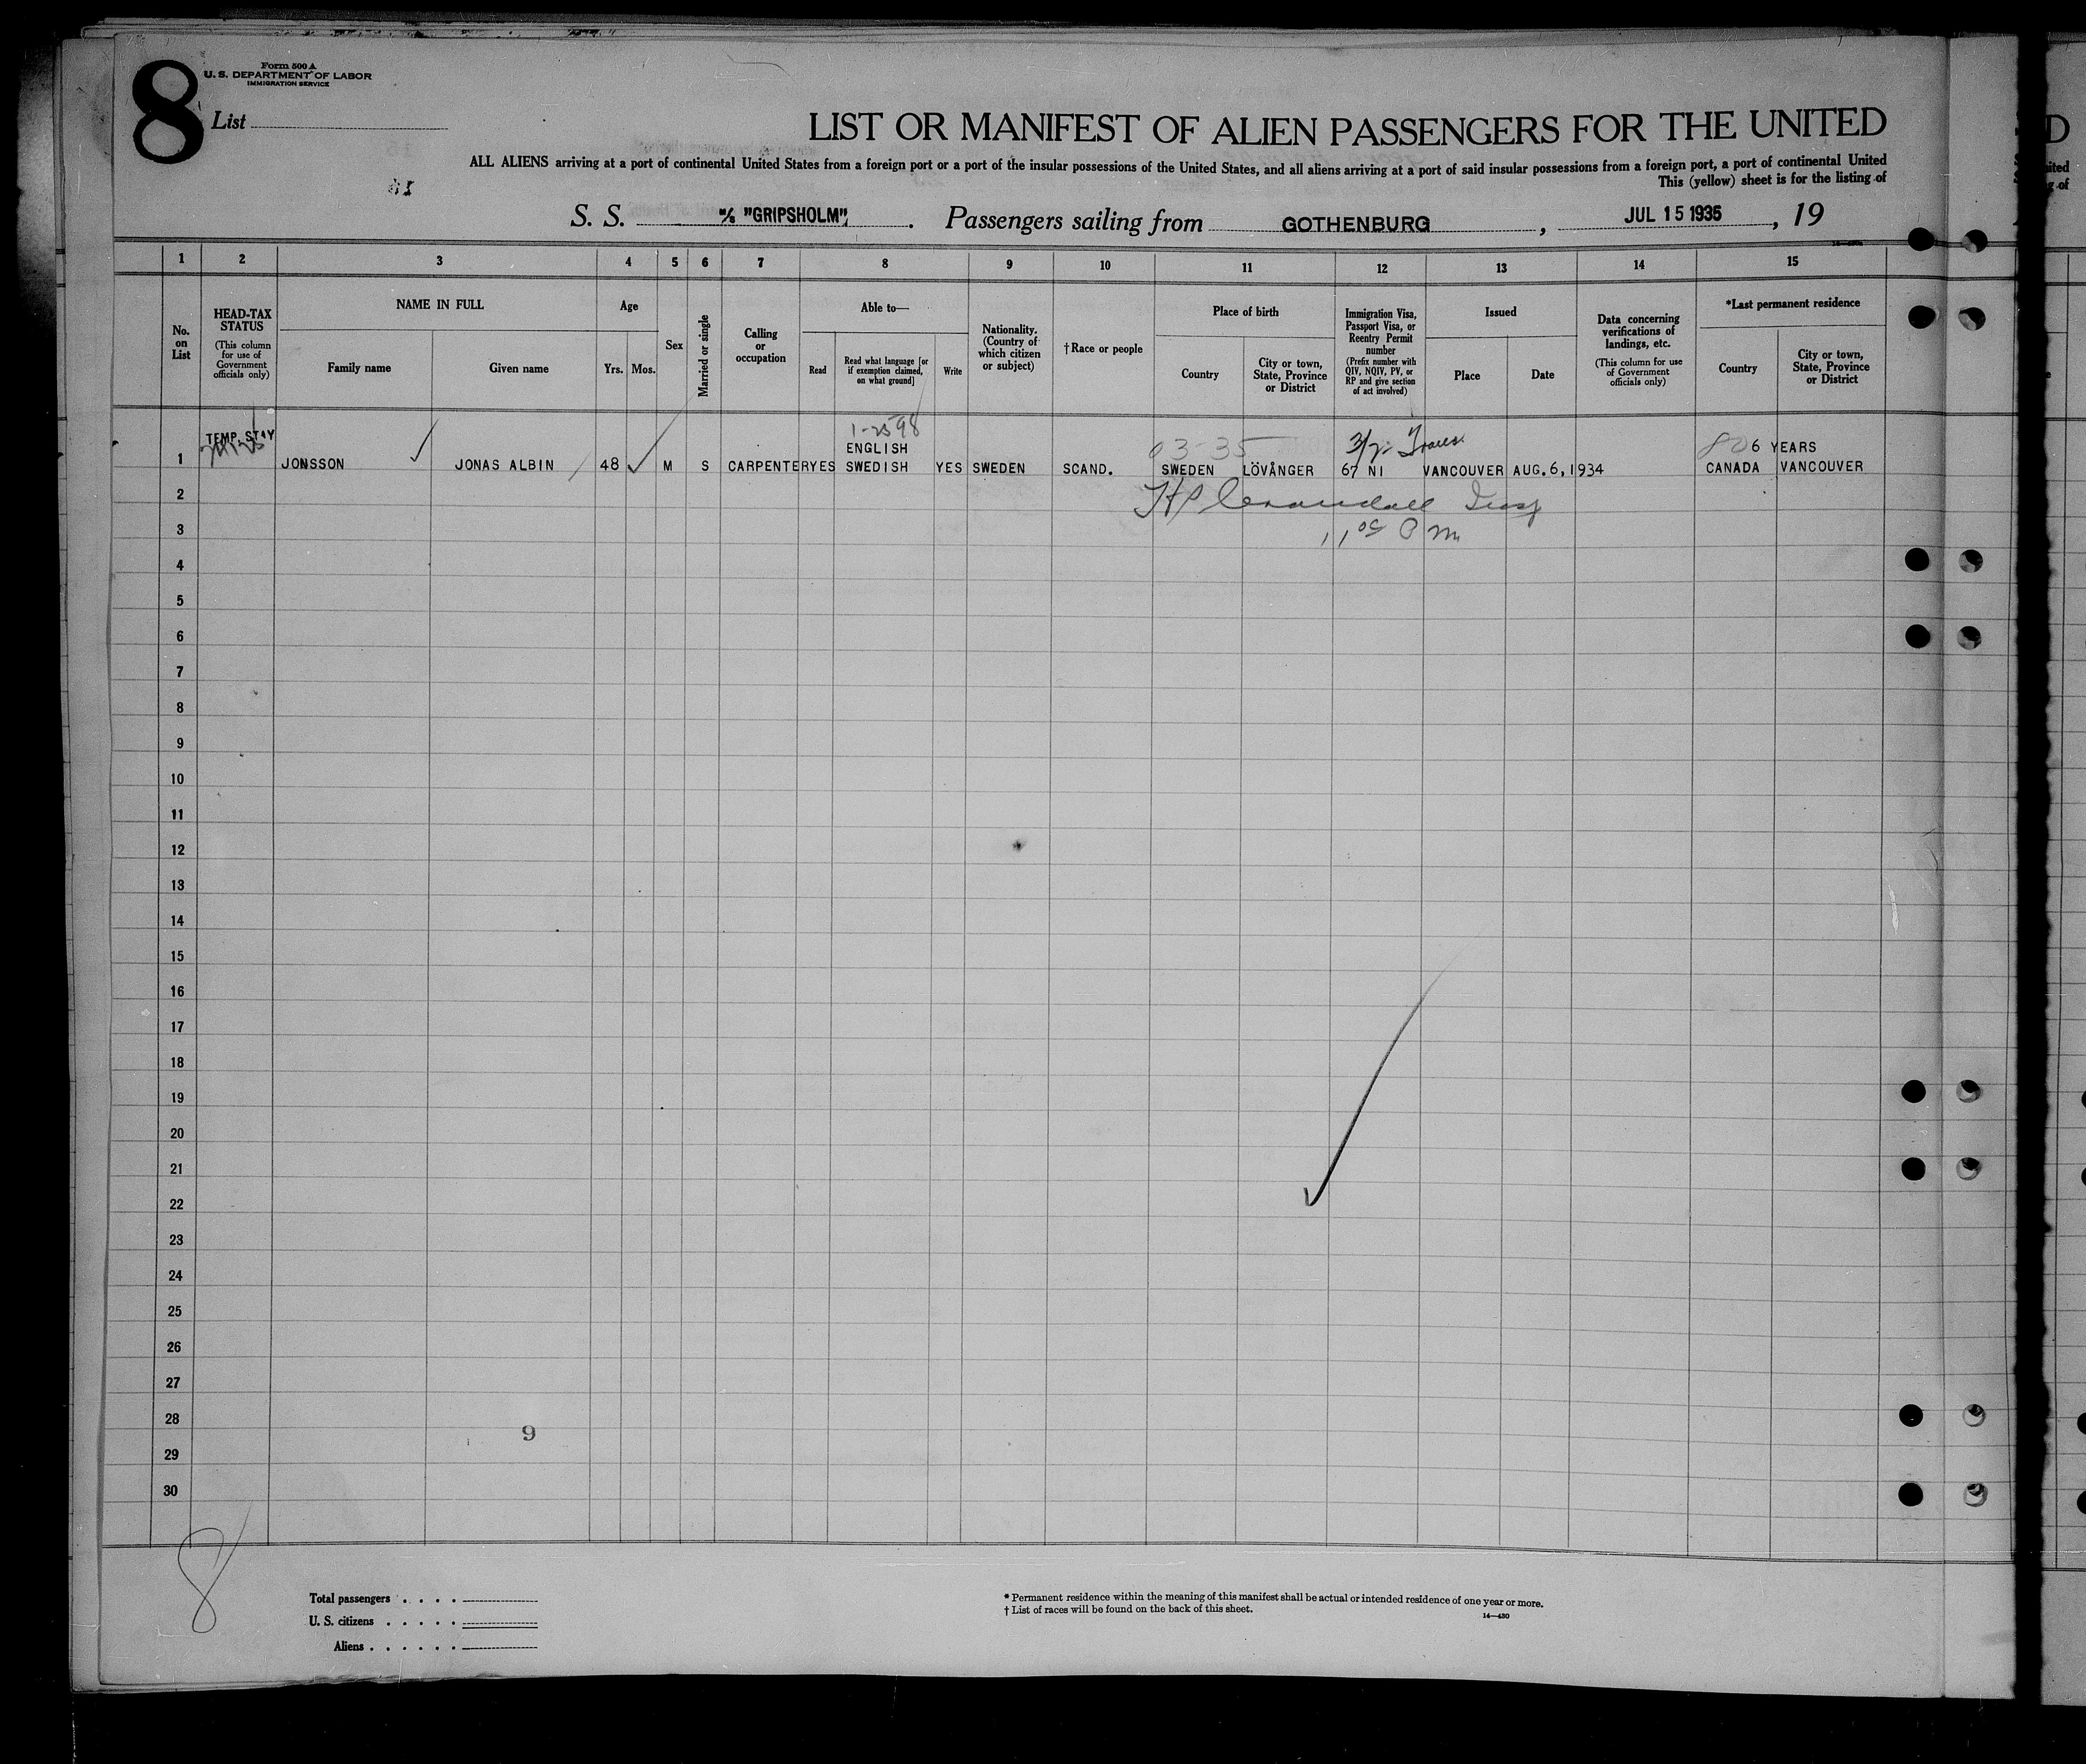 8
Form 500 A
U. S. DEPARTMENT OF LABOR
IMMIGRATION SERVICE
List
LIST OR MANIFEST OF ALIEN PASSENGERS FOR THE UNITED
ALL ALIENS arriving at a port of continental United States from a foreign port or a port of the insular possessions of the United States, and all aliens arriving at a port of said insular possessions from a foreign port, a port of continental United
This (yellow) sheet is for the listing of
S. S. M/S "GRIPSHOLM", Passengers sailing from GOTHENBURG, JUL 15 1935, 19
1 2 3 4 5 6 7 8 9 10 11 12 13 14 15
No. on List
HEAD-TAX STATUS
(This column for use of Government officials only)
NAME IN FULL
Family name
Given name
Age
Yrs. Mos.
Sex
Married or single
Calling or occupation
Able to—
Read
Read what language [or if exemption claimed, on what ground]
Write
Nationality. (Country of which citizen or subject)
†Race or people
Place of birth
Country
City or town, State, Province or District
Immigration Visa, Passport Visa, or Reentry Permit number
(Prefix number with QIV, NQIV, PV, or RP and give section of act involved)
Issued
Place
Date
Data concerning verifications of landings, etc.
(This column for use of Government officials only)
*Last permanent residence
Country
City or town, State, Province or District
1-2598
TEMP. STAY
ENGLISH
03-35
3/2 Trans
6 YEARS
1 JONSSON JONAS ALBIN 48 M S CARPENTER YES SWEDISH YES SWEDEN SCAND. SWEDEN LÖVÅNGER 67 NI VANCOUVER AUG. 6, 1934 CANADA VANCOUVER
2
H P Crandall Insp
3
11 05 P m
4
5
6
7
8
9
10
11
12
13
14
15
16
17
18
19
20
21
22
23
24
25
26
27
28
9
29
30
8
Total passengers . . . .
U. S. citizens . . . . .
Aliens . . . . . .
* Permanent residence within the meaning of this manifest shall be actual or intended residence of one year or more.
† List of races will be found on the back of this sheet.
14—430